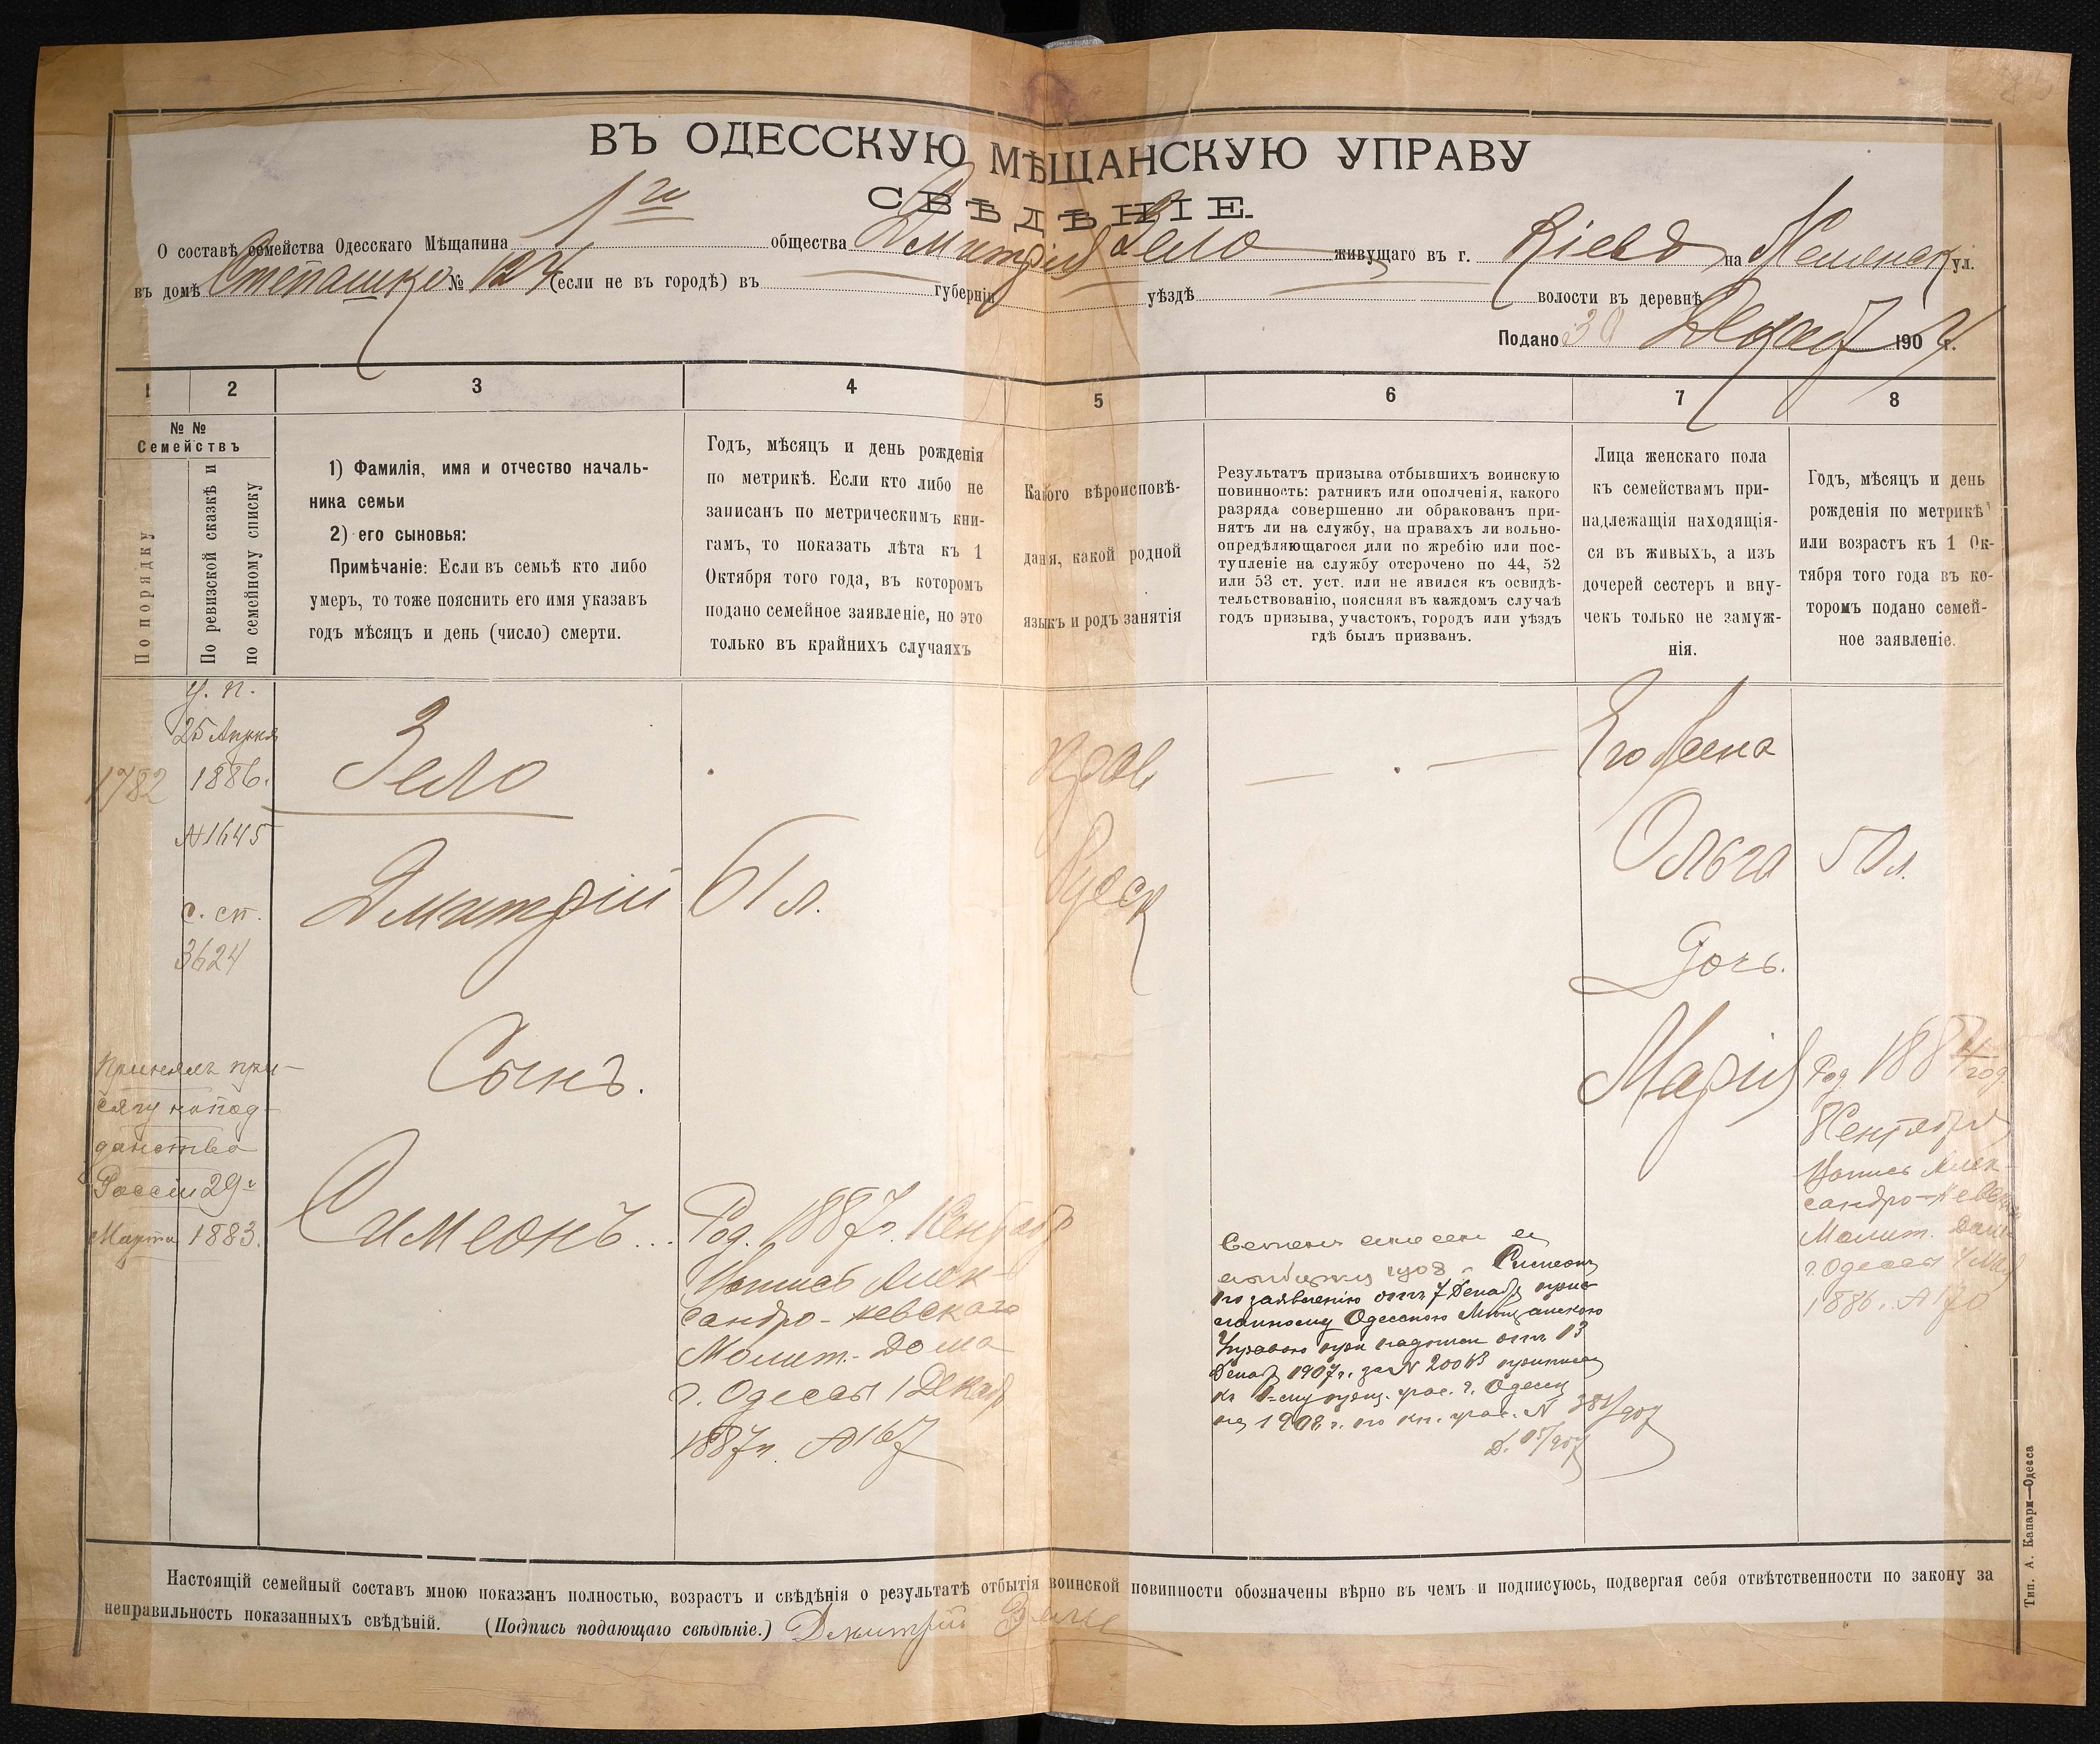 ВЪ ОДЕССКУЮ МѢЩАНСКУЮ УПРАВУ
СВѢДѢНІЕ.
О составѣ семейства Одесскаго Мѣщанина 1го общества Дмитрія Зело живущаго въ г. Кіевѣ на ул.
въ домѣ Степашко № 124 (если не въ городѣ) въ губерніи уѣздѣ волости въ деревнѣ
Подано 30 Декаб 190 г.
1 2 3 4 5 6 7 8
№ №
Семействъ
По порядку
По ревизской сказкѣ и
по семейному списку
1) Фамилія, имя и отчество началь-
ника семьи
2) его сыновья:
Примѣчаніе: Если въ семьѣ кто либо
умеръ, то тоже пояснить его имя указавъ
годъ мѣсяцъ и день (число) смерти.
Годъ, мѣсяцъ и день рожденія
по метрикѣ. Если кто либо не
записанъ по метрическимъ кни-
гамъ, то показать лѣта къ 1
Октября того года, въ которомъ
подано семейное заявленіе, но это
только въ крайнихъ случаяхъ
Какого вѣроисповѣ-
данія, какой родной
языкъ и родъ занятія
Результатъ призыва отбывшихъ воинскую
повинность: ратникъ или ополченія, какого
разряда совершенно ли обракованъ при-
нятъ ли на службу, на правахъ ли вольно-
опредѣляющагося или по жребію или пос-
тупленіе на службу отсрочено по 44, 52
или 53 ст. уст. или не явился къ освидѣ-
тельствованію, поясняя въ каждомъ случаѣ
годъ призыва, участокъ, городъ или уѣздъ
гдѣ былъ призванъ.
Лица женскаго пола
къ семействамъ при-
надлежащія находящія-
ся въ живыхъ, а изъ
дочерей сестеръ и вну-
чекъ только не замуж-
нія.
Годъ, мѣсяцъ и день
рожденія по метрикѣ
или возрастъ къ 1 Ок-
тября того года въ ко-
торомъ подано семей-
ное заявленіе.
1782
у. п.
25 Апрѣля
1886.
№1645
с. сп.
3624
Принялъ при-
сягу на под-
данство
Россіи 29го
Марта 1883.
Зело
Дмитрій
Сынъ.
Симеонъ
61 л.
Род. 1887г. 1 Сентября
Выпись Алек-
сандро-Невскаго
Молит. Дома
г. Одессы 1 Декаб
1887г. №167
Прав
Русск
по заявленію отъ 7 Декаб
Одесскою Мѣщанскою
Управою при надписи отъ 13
Декаб 1907г. за №
г. Одессы
на 1908 г.
381/907
Его жена
Ольга
Дочь.
Марія
50 л.
Род. 1884 год
8 Сентября
Выпись Алек-
сандро-Невск
Молит. Дома
г. Одессы
1886. №170
Настоящій семейный составъ мною показанъ полностью, возрастъ и свѣдѣнія о результатѣ отбытія воинской повинности обозначены вѣрно въ чемъ и подписуюсь, подвергая себя отвѣтственности по закону за
неправильность показанныхъ свѣдѣній. (Подпись подающаго свѣдѣніе.) Дмитрій
Тип. А. Капари—Одесса